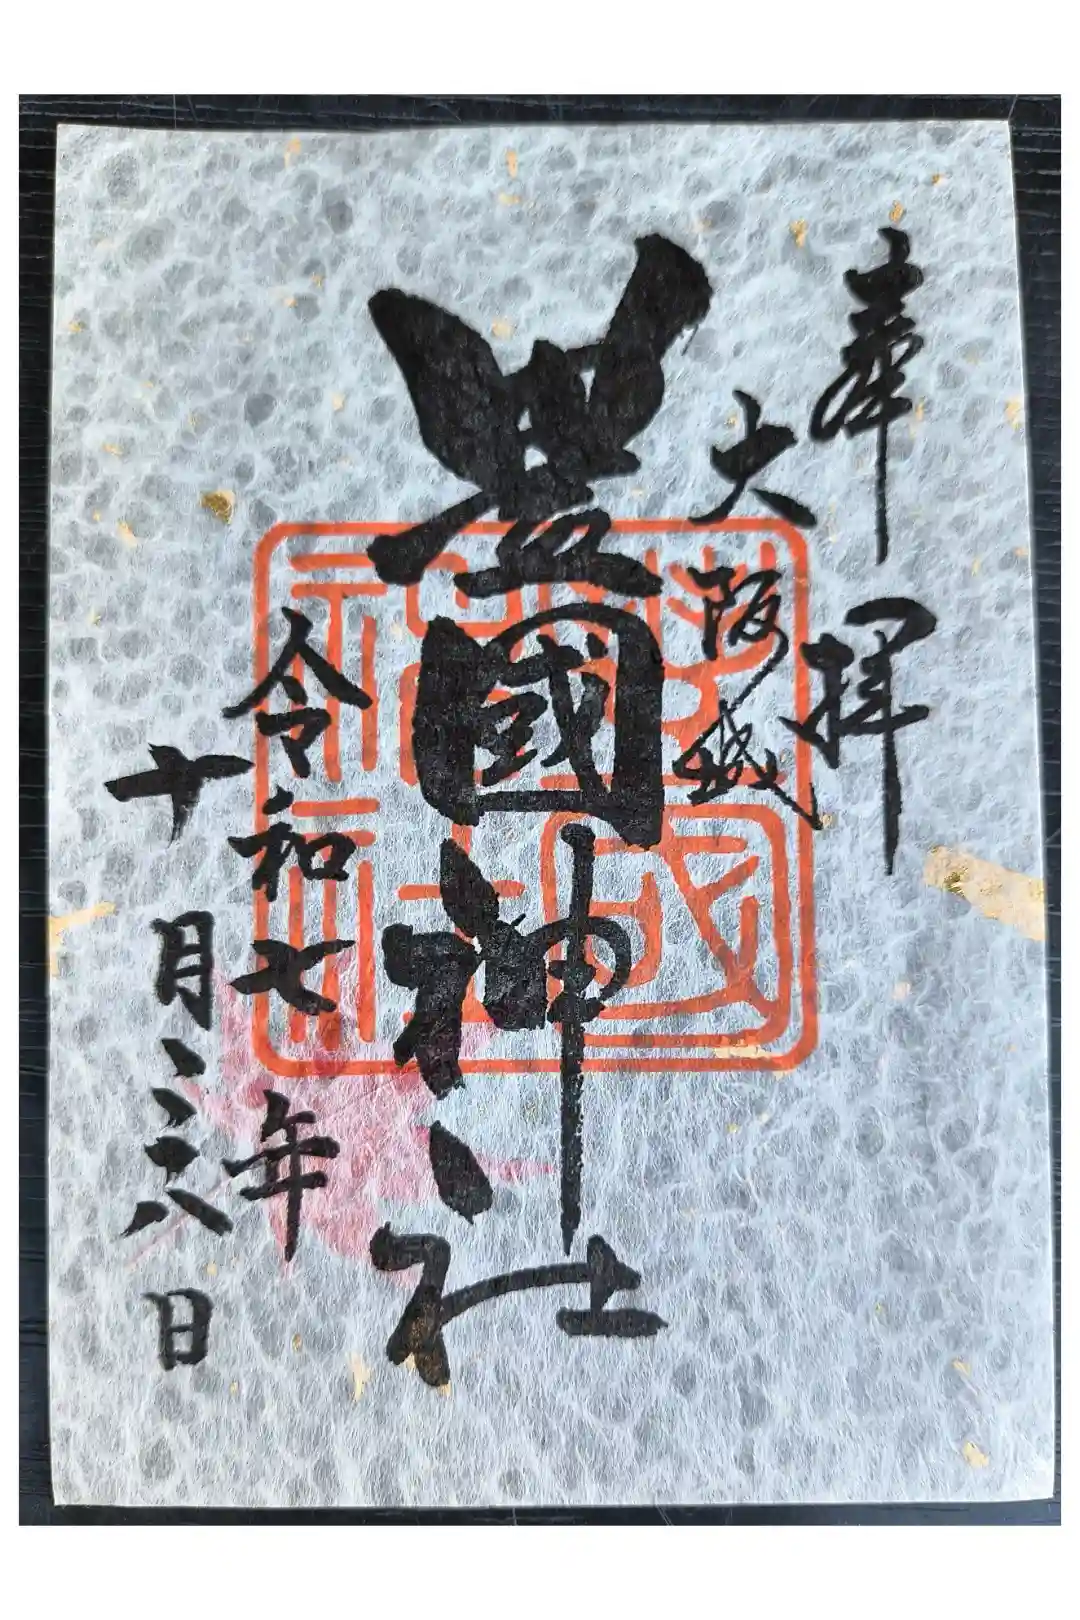 奉拝
大阪城
豊國神社
令和七年
十月日
豊國神社